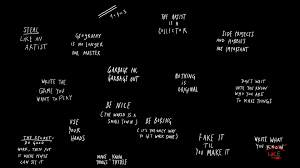 STEAL
LIKE AN
ARTIST
GEOGRAPHY
IS NO LONGER
OUR MASTER
THE ARTIST
IS A
COLLECTOR
SIDE PROJECTS
AND HOBBIES
ARE IMPORTANT
WRITE THE
GAME YOU
WANT TO PLAY
GARBAGE IN,
GARBAGE OUT
NOTHING
IS
ORIGINAL
DON'T WAIT
UNTIL YOU
KNOW WHO
YOU ARE
TO MAKE THINGS
USE
YOUR
HANDS
BE NICE
(THE WORLD IS A
SMALL TOWN)
BE BORING
(IT'S THE ONLY WAY
TO GET WORK
DONE)
THE SECRET:
DO GOOD
WORK, THEN PUT
IT WHERE PEOPLE
CAN SEE IT
MAKE
THINGS
FAKE IT
'TIL YOU
MAKE IT
WRITE WHAT
YOU KNOW
LIKE